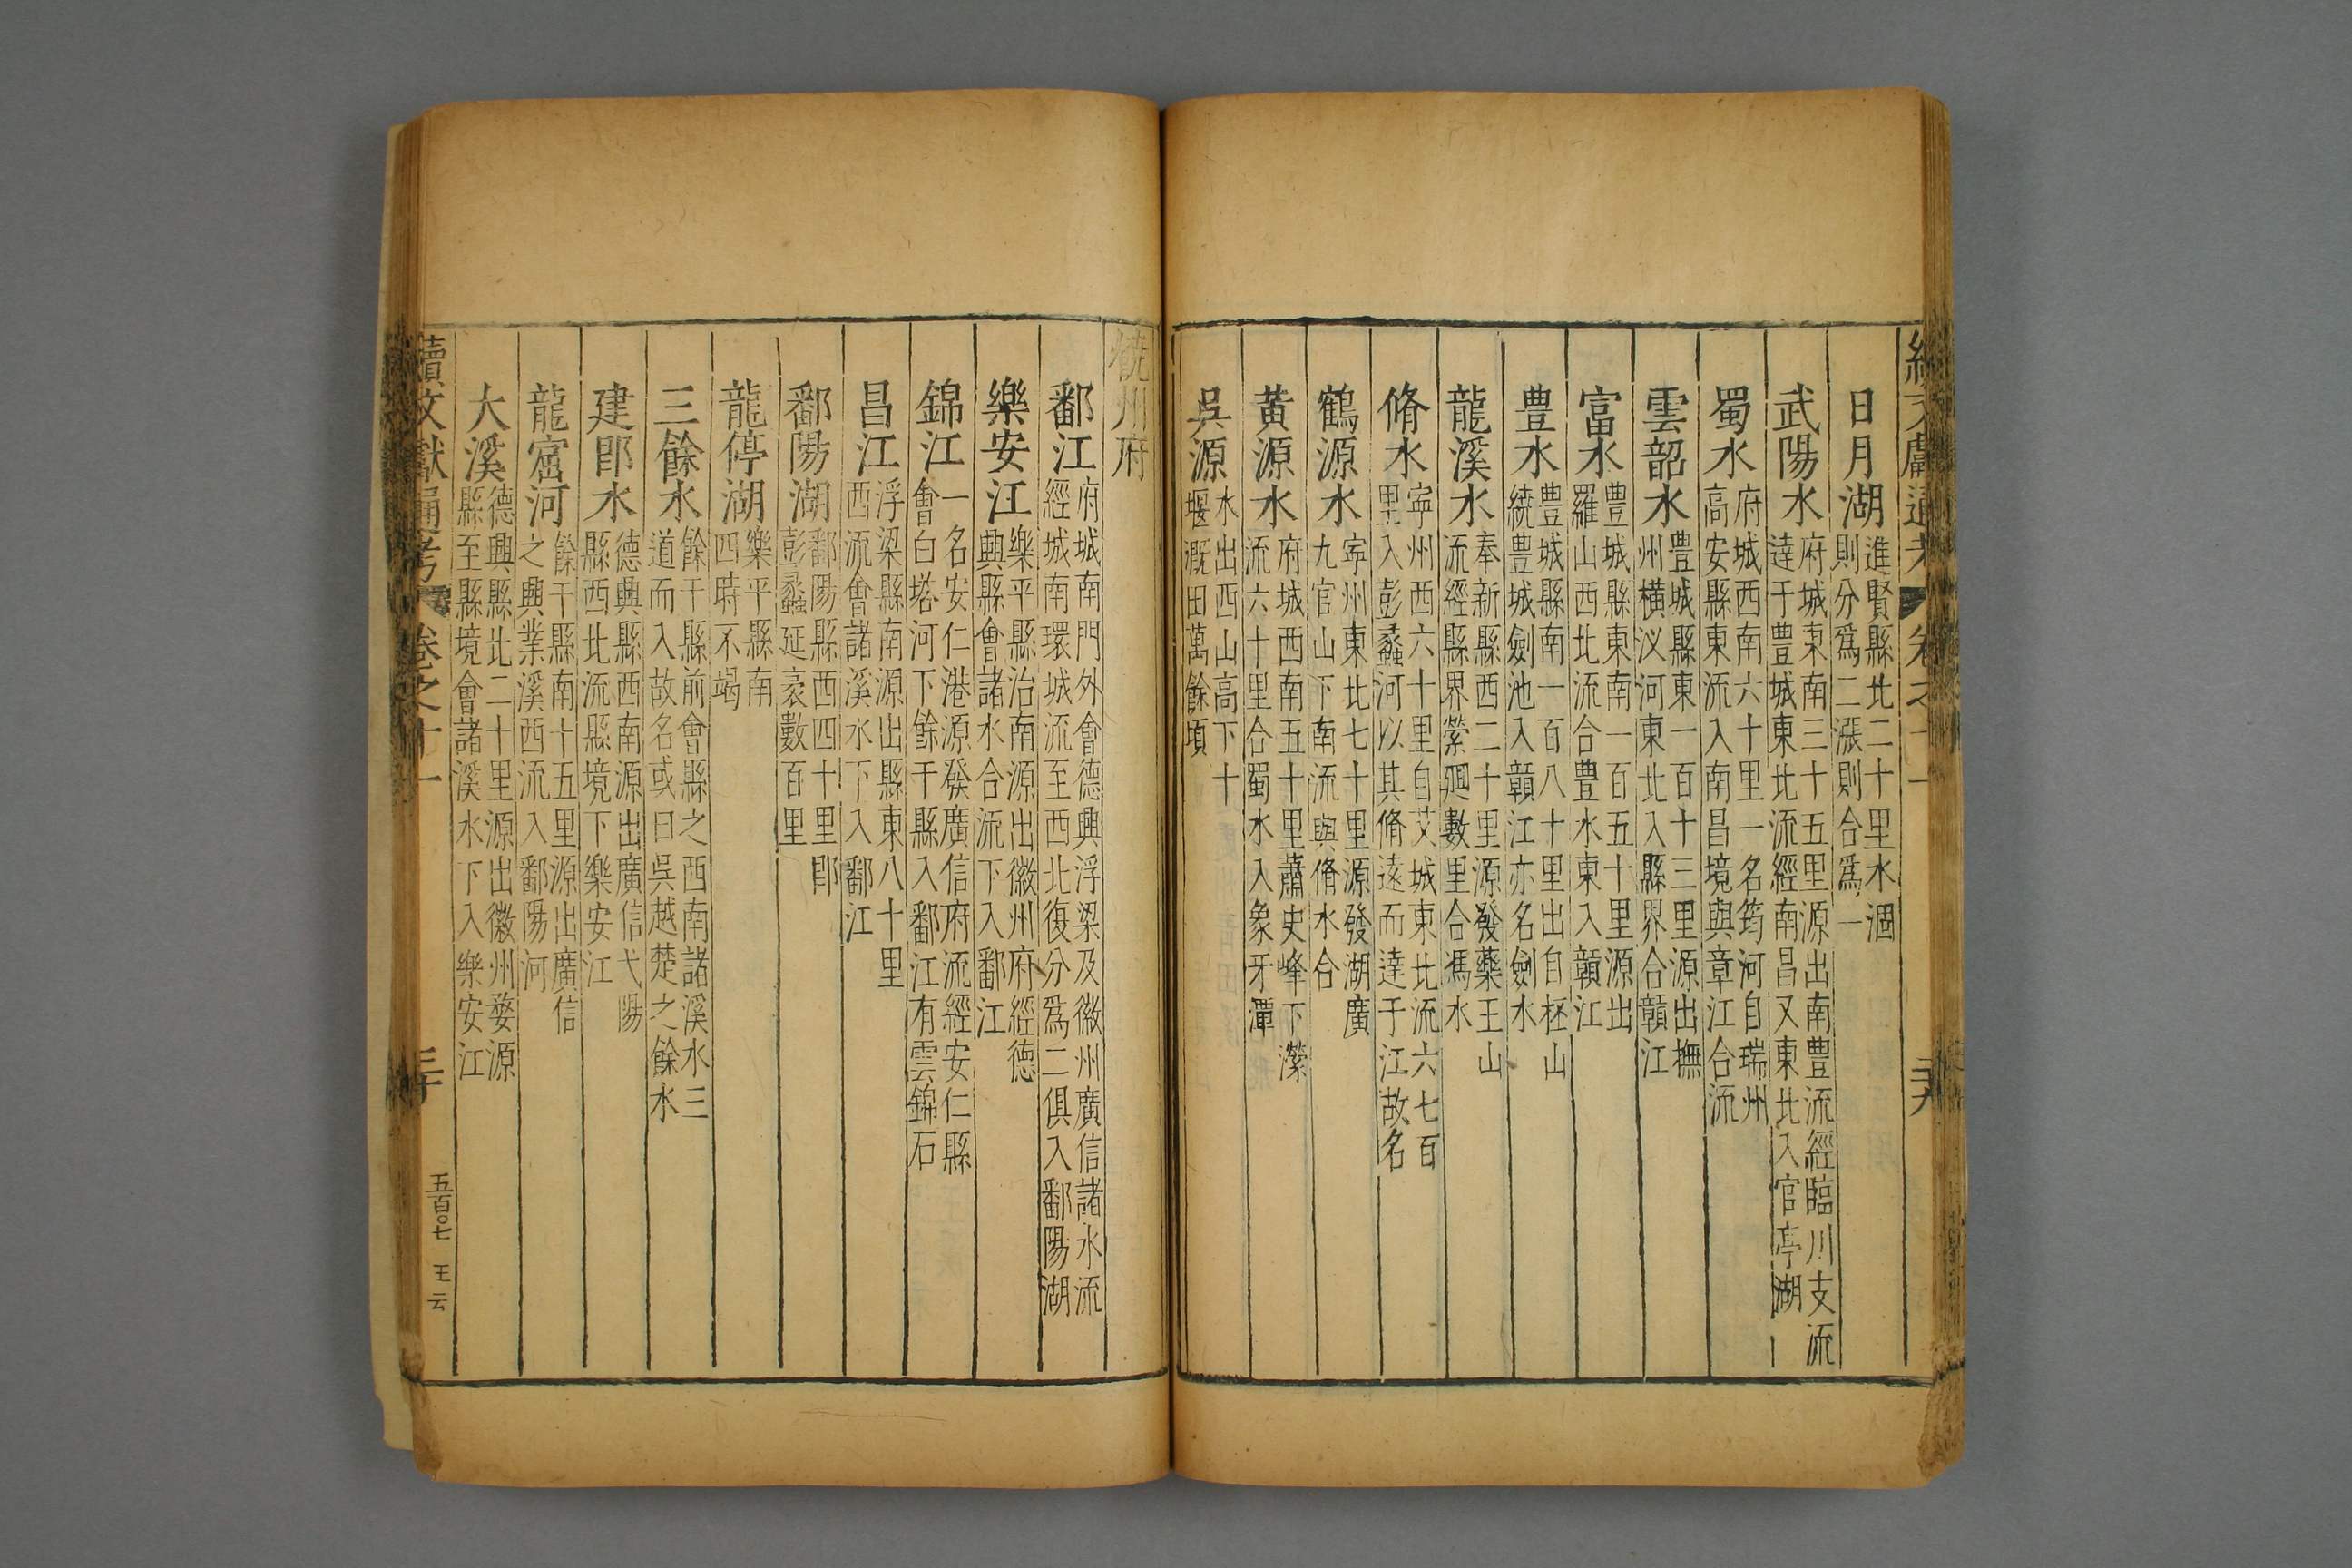 續文獻通考 卷之十一
日月湖進賢縣北二十里水涸
則分爲二漲則合爲一
武陽水府城東南三十五里源出南豊流經臨川支流
達于豊城東北流經南昌又東北入官亭湖
蜀水府城西南六十里一名筠河自瑞州
高安縣東流入南昌境與章江合流
雲韶水豊城縣東一百十三里源出撫
州橫汊河東北入縣界合贛江
富水豊城縣東南一百五十里源出
羅山西北流合豊水東入贛江
豊水豊城縣南一百八十里出自柸山
繞豊城劍池入贛江亦名劍水
龍溪水奉新縣西二十里源發藥王山
流經縣界縈廻數里合馮水
脩水寜州西六十里自艾城東北流六七百
里入彭蠡河以其脩遠而達于江故名
鶴源水寜州東北七十里源發湖廣
九官山下南流與脩水合
黃源水府城西南五十里蕭史峰下瀠
流六十里合蜀水入象牙潭
吳源水出西山高下十
堰溉田萬餘頃
饒州府
鄱江府城南門外會德興浮梁及徽州廣信諸水流
經城南環城流至西北復分爲二俱入鄱陽湖
樂安江樂平縣治南源出徽州府經德
興縣會諸水合流下入鄱江
錦江一名安仁港源發廣信府流經安仁縣
會白塔河下餘干縣入鄱江有雲錦石
昌江浮梁縣南源出縣東八十里
西流會諸溪水下入鄱江
鄱陽湖鄱陽縣西四十里卽
彭蠡延袤數百里
龍停湖樂平縣南
四時不竭
三餘水餘干縣前會縣之西南諸溪水三
道而入故名或曰吳越楚之餘水
建卽水德興縣西南源出廣信弋陽
縣西北流縣境下樂安江
龍窟河餘干縣南十五里源出廣信
之興業溪西流入鄱陽河
大溪德興縣北二十里源出徽州婺源
縣至縣境會諸溪水下入樂安江
續文獻通考 卷之十一 三十
五百〇七 王云